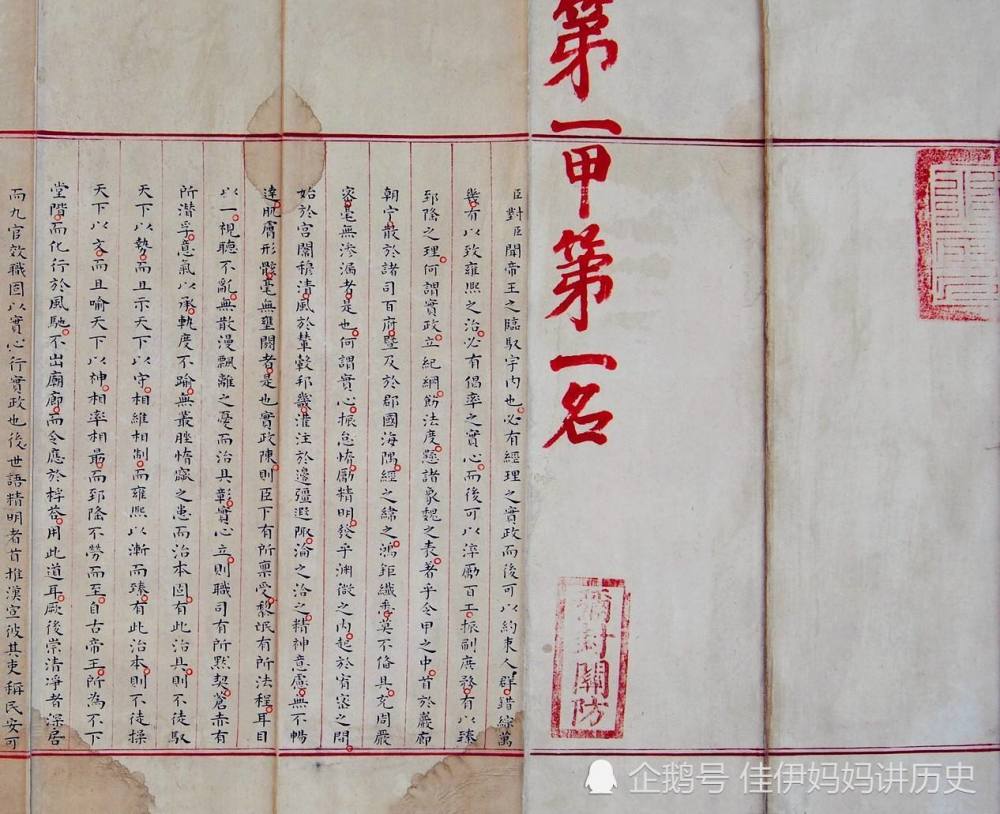 第一甲第一名
彌封關防
臣對臣聞帝王之臨馭宇內也必有經理之實政而後可以約束人群錯綜萬
幾有以致雍熙之治必有倡率之實心而後可以淬勵百工振刷庶務有以臻
郅隆之理何謂實政立紀綱飭法度懸諸象魏之表著乎令甲之中首於巖廊
朝宁散於諸司百府暨及於郡國海隅經之緯之鴻鉅纖悉莫不備具充周嚴
密毫無滲漏者是也何謂實心振怠惰勵精明發乎淵微之內起於宥密之間
始於宮闈穆清風於輦轂邦畿灌注於邊疆遐陬淪之洽之精神意慮無不暢
達肌膚形骸毫無壅閼者是也實政陳則臣下有所稟受黎氓有所法程耳目
以一視聽不亂無散漫飄離之憂而治具彰實心立則職司有所默契蒼赤有
所潛孚意氣以承軌度不踰無叢脞惰窳之患而治本固有此治具則不徒馭
天下以勢而且示天下以守相維相制而雍熙以漸而臻有此治本則不徒操
天下以文而且喻天下以神相率相最而郅隆不勞而至自古帝王所為不下
堂階而化行於風馳不出廟廊而令應於桴答用此道耳厥後崇清淨者深居
而九官效職固以實心行實政也後世語精明者首推漢宣彼其吏稱民安可
企鹅号 佳伊妈妈讲历史